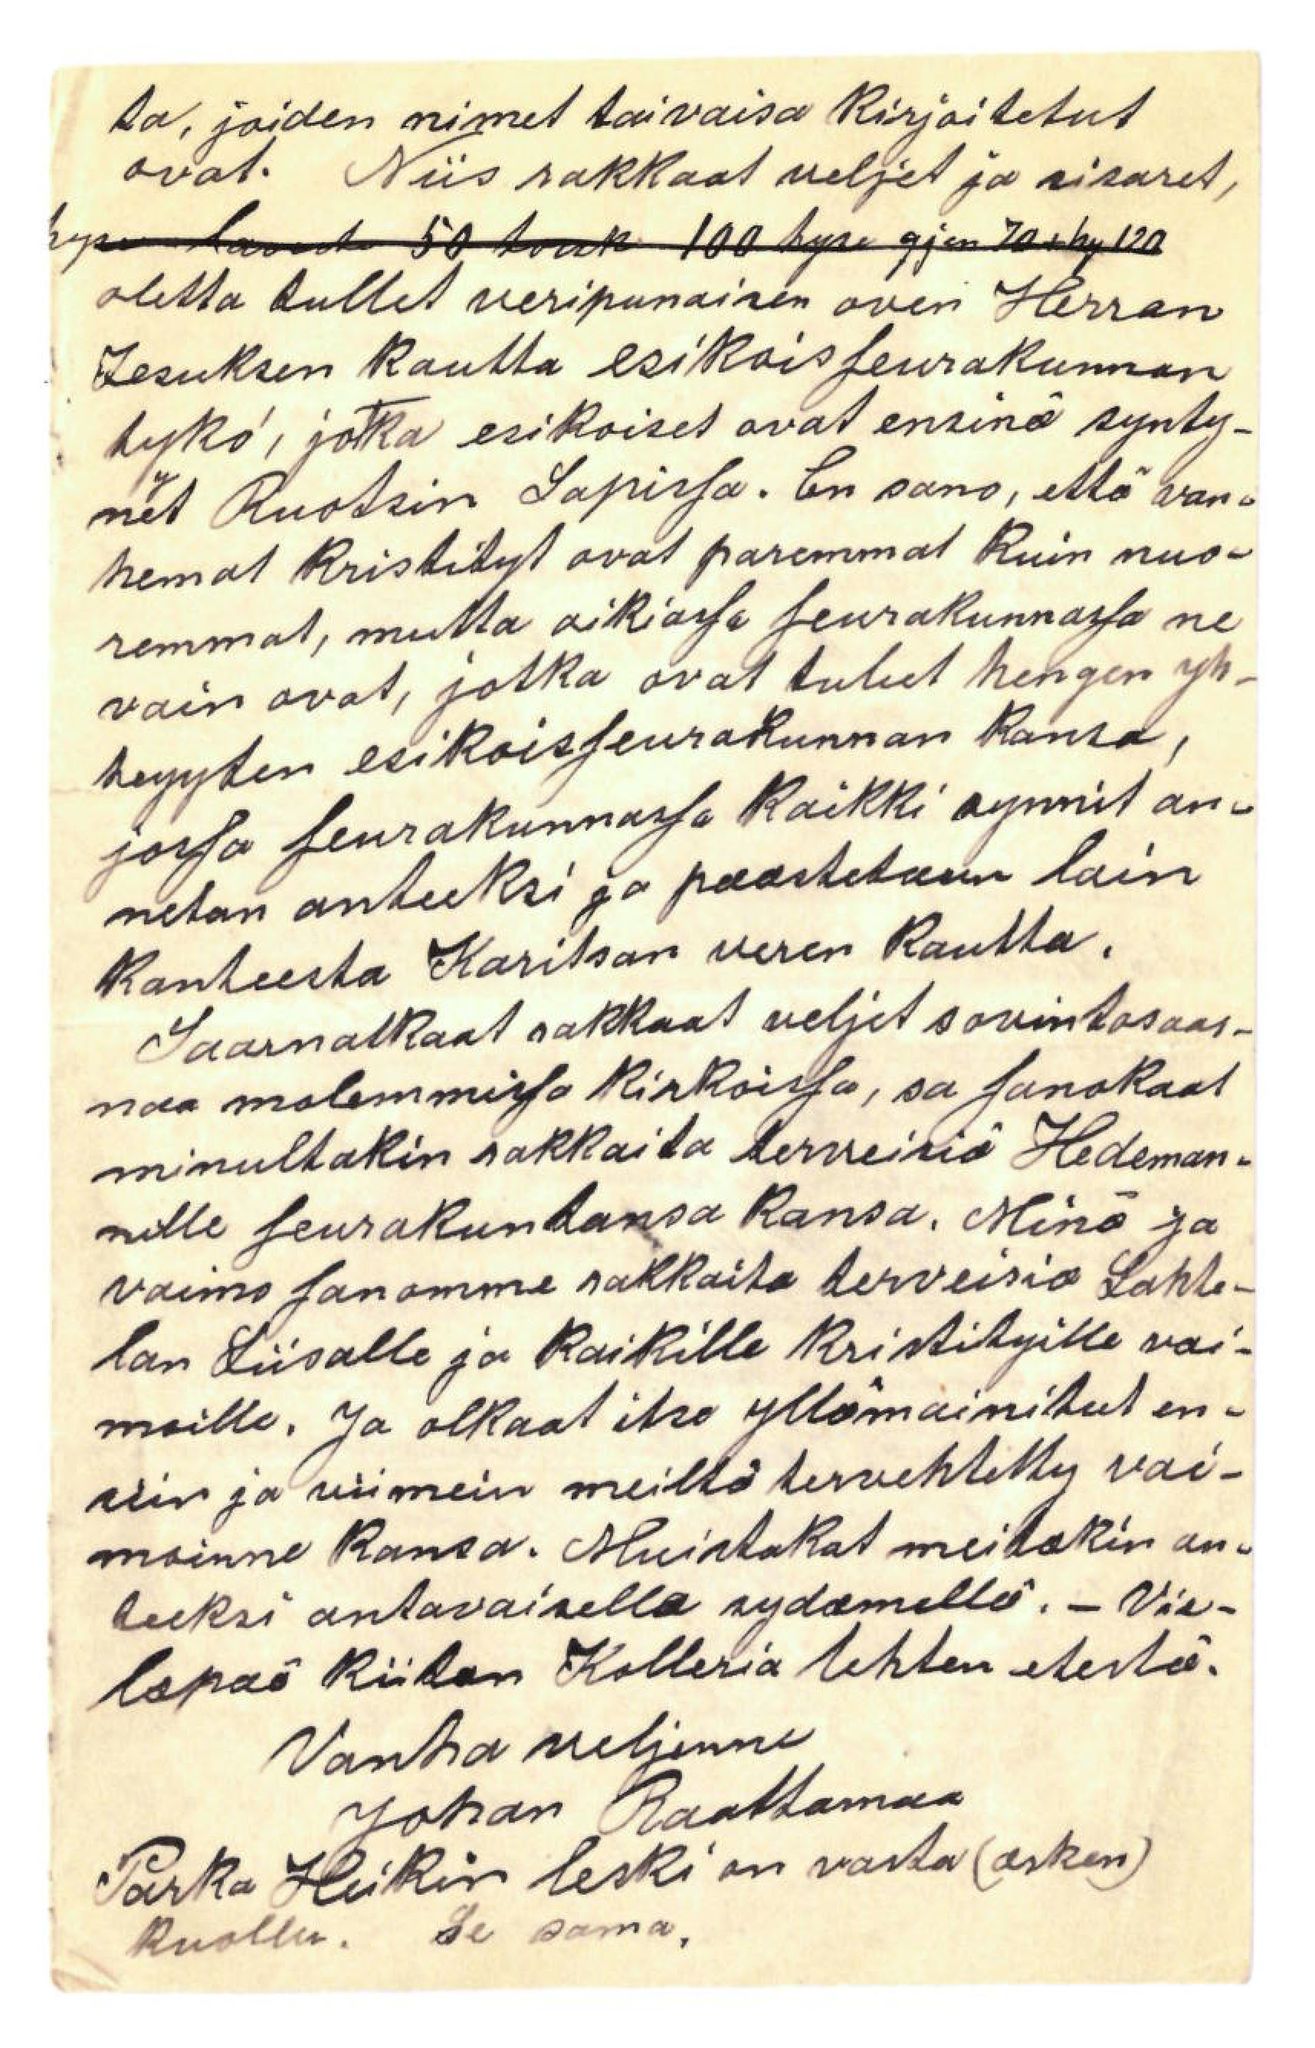 ta, joiden nimet taivaisa kirjoitetut
ovat. Niis rakkaat veljet ja sisaret,
50 100 hyse gjen 70 120
oletta tullet veripunaisen oven Herran
Jesuksen kautta esikoisseurakunnan
tykö, jotka esikoiset ovat ensinä synty-
nyet Ruotsin Lapissa. En sano, ettö van-
hemat kristityt ovat paremmat kuin nuo-
remmat, mutta oikiassa seurakunnassa ne
vain ovat, jotka ovat tulut hengen yh-
teyyten esikoisseurakunnan kansa,
jossa seurakunnassa kaikki synnit an-
netan anteeksi ja pæästetæen lain
kanteesta Karitsan veren kautta.
Saarnatkaat rakkaat veljet sovintosaar-
naa molemmissa kirkoissa, sa sanokaat
minultakin rakkaita terveisiö Hedeman-
nille seurakuntansa kansa. Minö ja
vaimo sanomme rakkaita terveisiæ Lahte-
lan Liisalle ja kaikille kristityille vai-
moille. Ja olkaat itse yllömainitut en-
siin ja viimein meiltö tervehtetty vai-
moinne kansa. Muistakat meitækin an-
teeksi antavaisella sydæmellö. - Vie-
læpaö kiitæn Kolleria lehten etestö.
Vanha veljenne
Johan Raattamaa
Parka Heikin leski on vasta (æsken)
kuollu. Se sama.